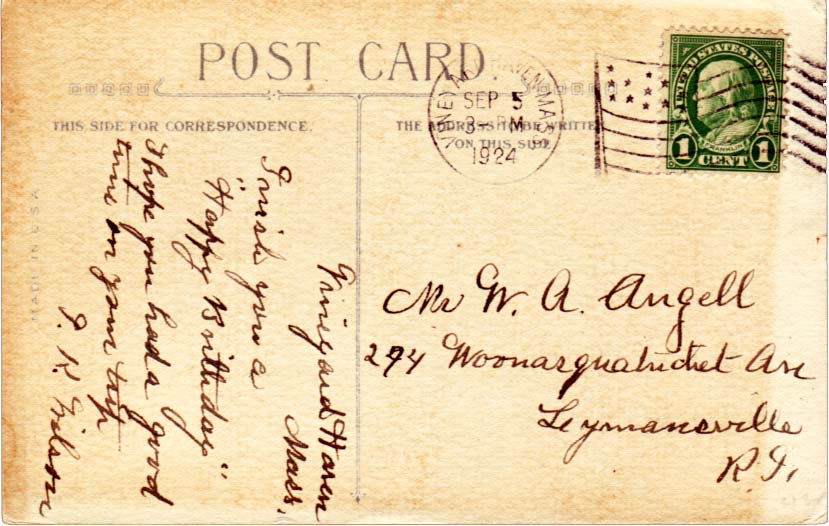 POST CARD.
THIS SIDE FOR CORRESPONDENCE.
THE ADDRESS TO BE WRITTEN
ON THIS SIDE
VINEYARD HAVEN MASS
SEP 5
3-PM
1924
UNITED STATES POSTAGE
FRANKLIN
1 CENT 1
MADE IN U.S.A
Vineyard Haven
Mass.
I wish you a
"Happy Birthday"
I hope you had a good
time on your trip
Wilson
Mr W. A. Angell
294 Woonasquatucket Ave
Lymansville
R.I.